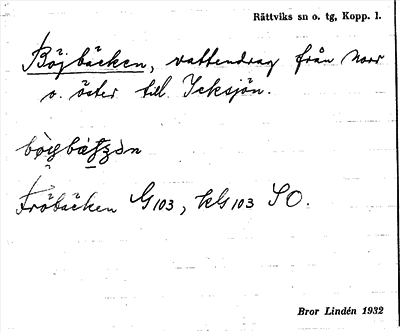 Rättviks sn o. tg, Kopp. l.
Böjbäcken, vattendrag från Norr
o. öster till Icksjön.
Fröbäcken G103, kG103 SO.
Bror Lindén 1932